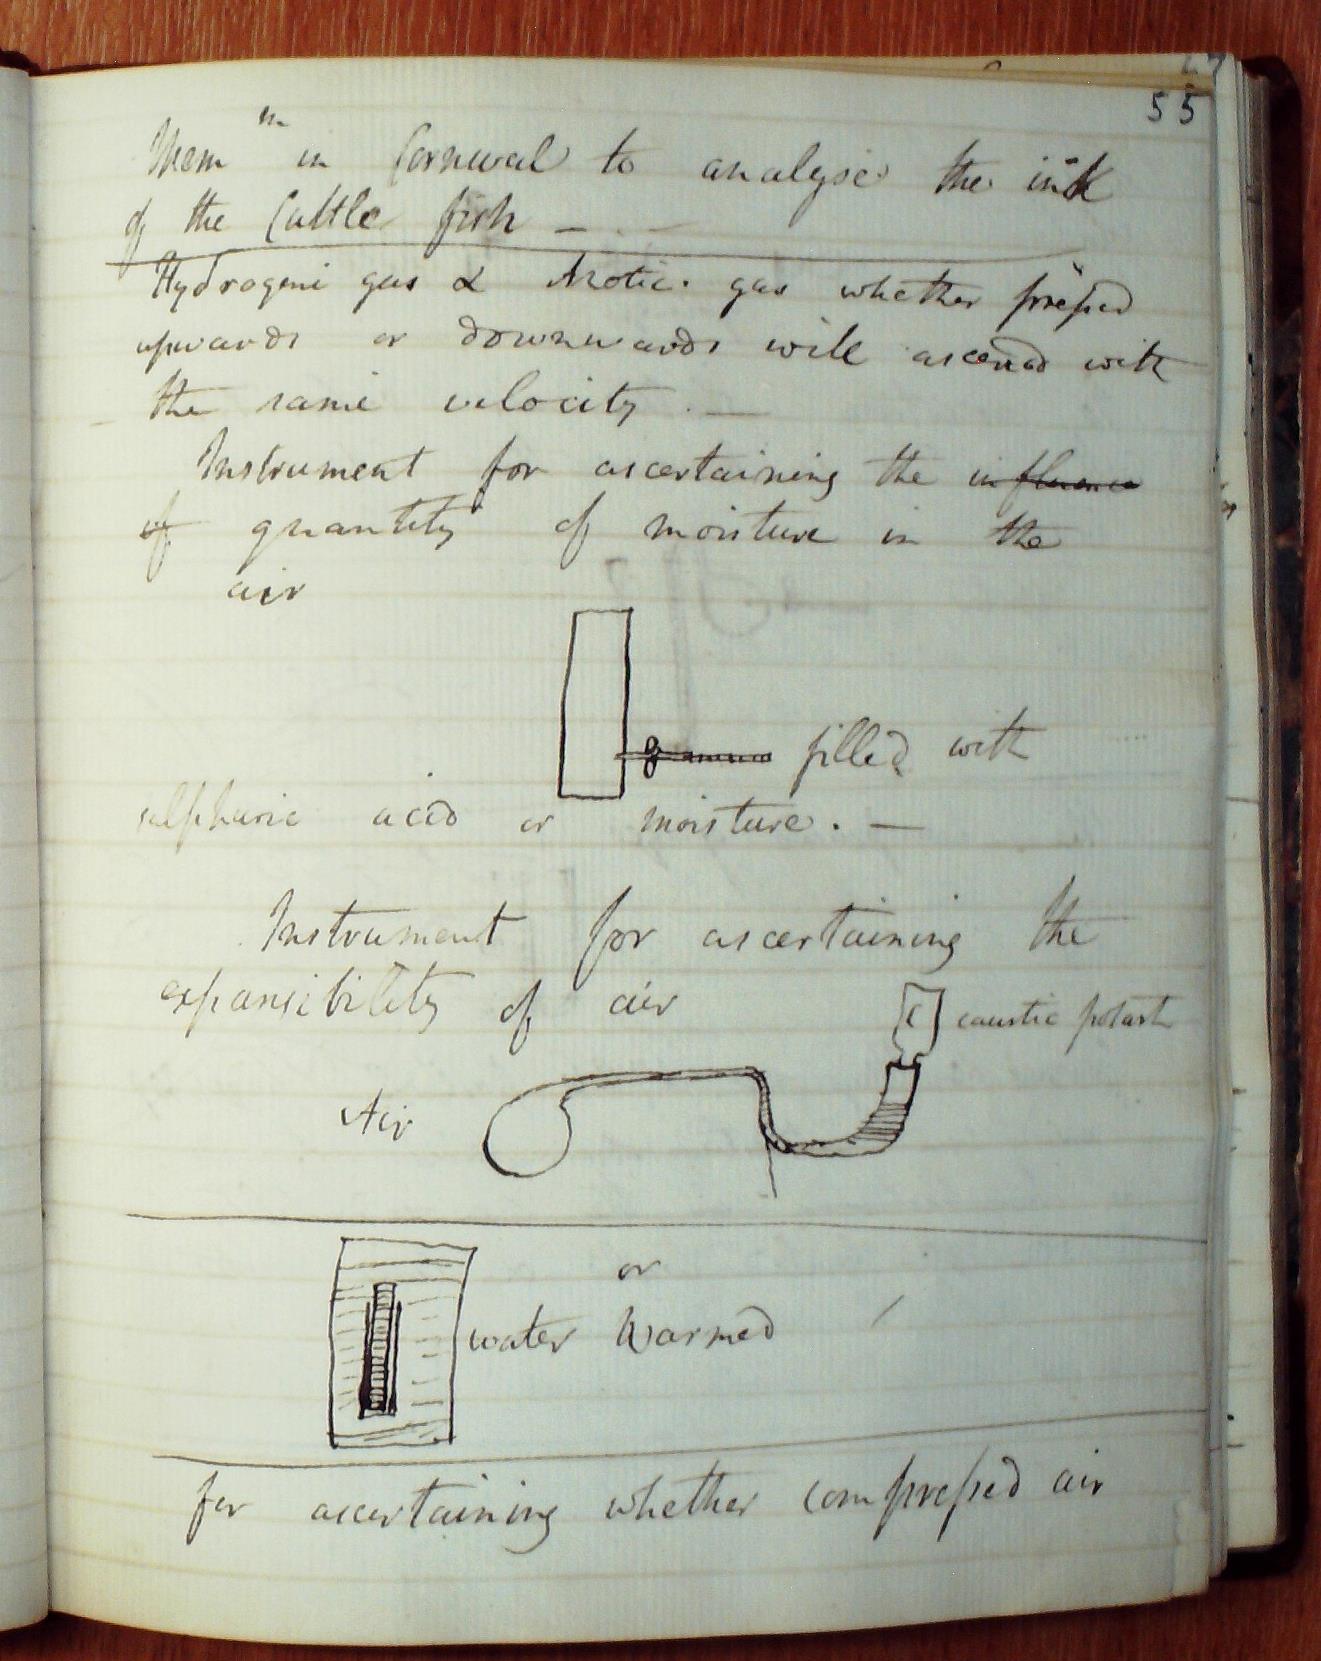 55
Mem^m in Cornwal to analyse the ink
of the Cuttle fish —
Hydrogene gas & Azotic gas whether pressed
upwards or downwards will ascend with
the same velocity. —
Instrument for ascertaining the influence
of quantity of moisture in the
air
filled with
sulphuric acid or moisture. —
Instrument for ascertaining the
expansibility of air
C caustic potash
Air
or
water warmed
for ascertaining whether compressed air